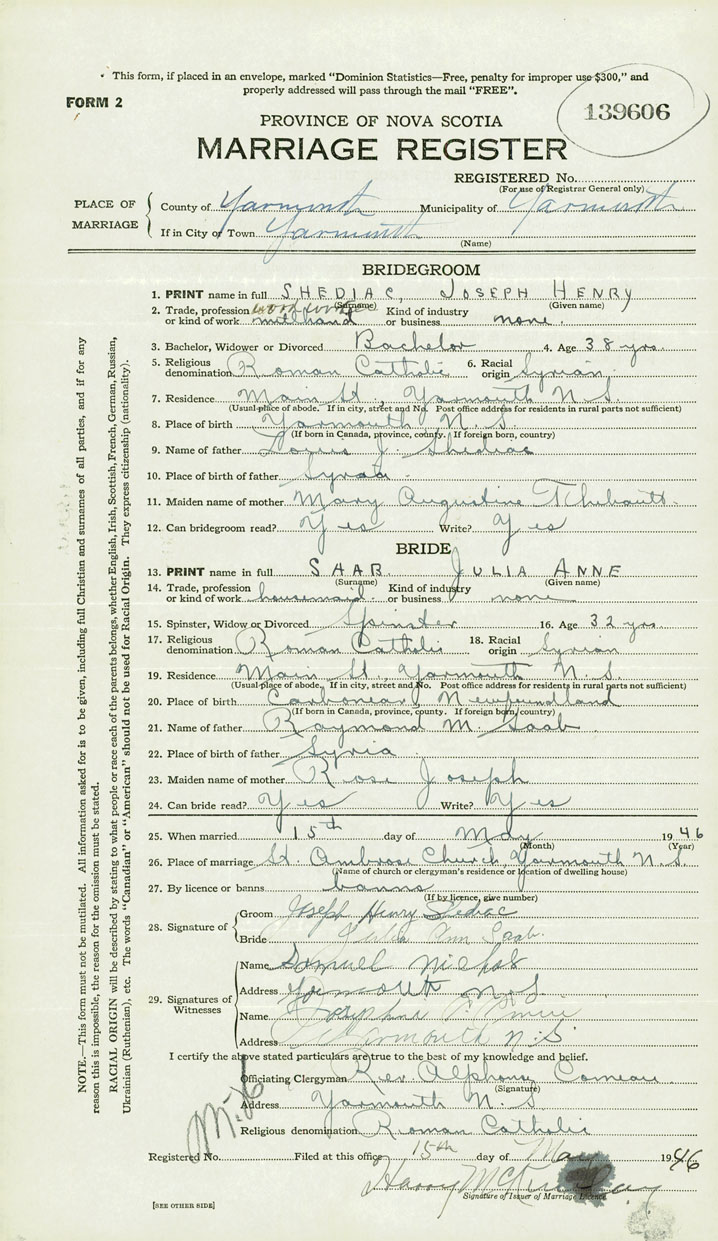 • This form, if placed in an envelope, marked “Dominion Statistics—Free, penalty for improper use $300,” and
properly addressed will pass through the mail “FREE”.
FORM 2
139606
PROVINCE OF NOVA SCOTIA
MARRIAGE REGISTER
REGISTERED No.
(For use of Registrar General only)
PLACE OF MARRIAGE
County of Yarmouth Municipality of Yarmouth
If in City or Town Yarmouth
(Name)
BRIDEGROOM
1. PRINT name in full SHEDIAC, JOSEPH HENRY
(Surname) (Given name)
2. Trade, profession or kind of work millhand Kind of industry or business none.
3. Bachelor, Widower or Divorced Bachelor 4. Age 38 yrs.
5. Religious denomination Roman Catholic 6. Racial origin Syrian
7. Residence Main St., Yarmouth N.S.
(Usual place of abode. If in city, street and No. Post office address for residents in rural parts not sufficient)
8. Place of birth Yarmouth N.S.
(If born in Canada, province, county. If foreign born, country)
9. Name of father Louis J. Shediac
10. Place of birth of father Syria
11. Maiden name of mother Mary Augustine
12. Can bridegroom read? Yes Write? Yes
BRIDE
13. PRINT name in full SAAB JULIA ANNE
(Surname) (Given name)
14. Trade, profession or kind of work housemaid Kind of industry or business none
15. Spinster, Widow or Divorced Spinster 16. Age 32 yrs.
17. Religious denomination Roman Catholic 18. Racial origin Syrian
19. Residence Main St., Yarmouth N.S.
(Usual place of abode. If in city, street and No. Post office address for residents in rural parts not sufficient)
20. Place of birth Carbonear Newfundland
(If born in Canada, province, county. If foreign born, country)
21. Name of father Raymond M. Saab
22. Place of birth of father Syria
23. Maiden name of mother Rose Joseph
24. Can bride read? Yes Write? Yes
25. When married 15th day of May 1946
(Month) (Year)
26. Place of marriage St. Ambrose Church, Yarmouth N.S.
(Name of church or clergyman's residence or location of dwelling house)
27. By licence or banns banns
(If by licence, give number)
28. Signature of
Groom Joseph Henry Shediac
Bride Julia Ann Saab.
29. Signatures of Witnesses
Name Samuel
Address Yarmouth N.S.
Name Josephine
Address Yarmouth N.S.
I certify the above stated particulars are true to the best of my knowledge and belief.
Officiating Clergyman Rev. Alphonse Comeau
(Signature)
Address Yarmouth N.S.
Religious denomination Roman Catholic
Registered No. Filed at this office 15th day of May 1946
Harry
Signature of Issuer of Marriage Licence
[SEE OTHER SIDE]
NOTE.—This form must not be mutilated. All information asked for is to be given, including full Christian and surnames of all parties, and if for any
reason this is impossible, the reason for the omission must be stated.
RACIAL ORIGIN will be described by stating to what people or race each of the parents belongs, whether English, Irish, Scottish, French, German, Russian,
Ukrainian (Ruthenian), etc. The words “Canadian” or “American” should not be used for Racial Origin. They express citizenship (nationality).